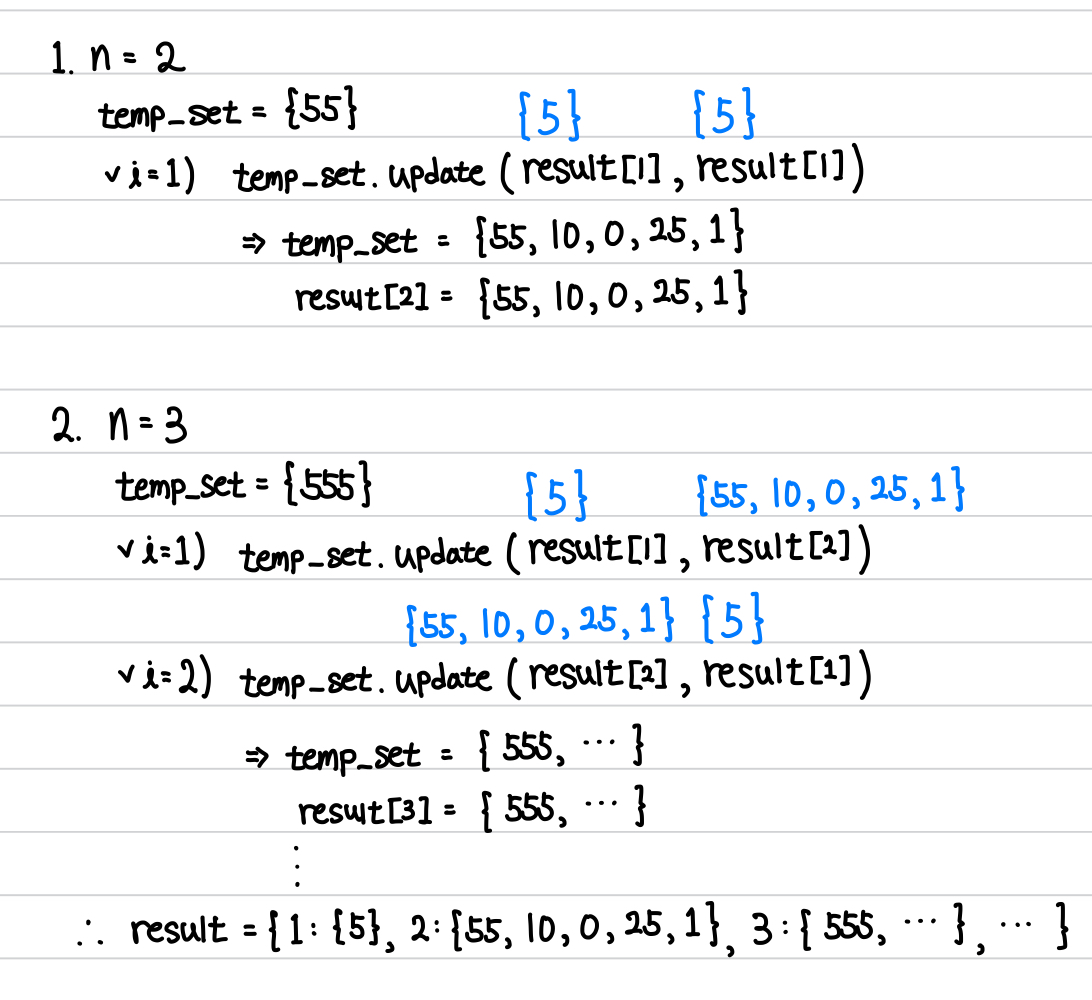 1. n = 2
temp_set = {55} {5} {5}
✓ i=1) temp_set.update (result[1], result[1])
⇒ temp_set = {55, 10, 0, 25, 1}
result[2] = {55, 10, 0, 25, 1}
2. n = 3
temp_set = {555} {5} {55, 10, 0, 25, 1}
✓ i=1) temp_set.update (result[1], result[2])
{55, 10, 0, 25, 1} {5}
✓ i=2) temp_set.update (result[2], result[1])
⇒ temp_set = { 555, ⋯ }
result[3] = { 555, ⋯ }
⋮
∴ result = {1: {5}, 2:{55, 10, 0, 25, 1}, 3:{ 555, ⋯ }, ⋯ }